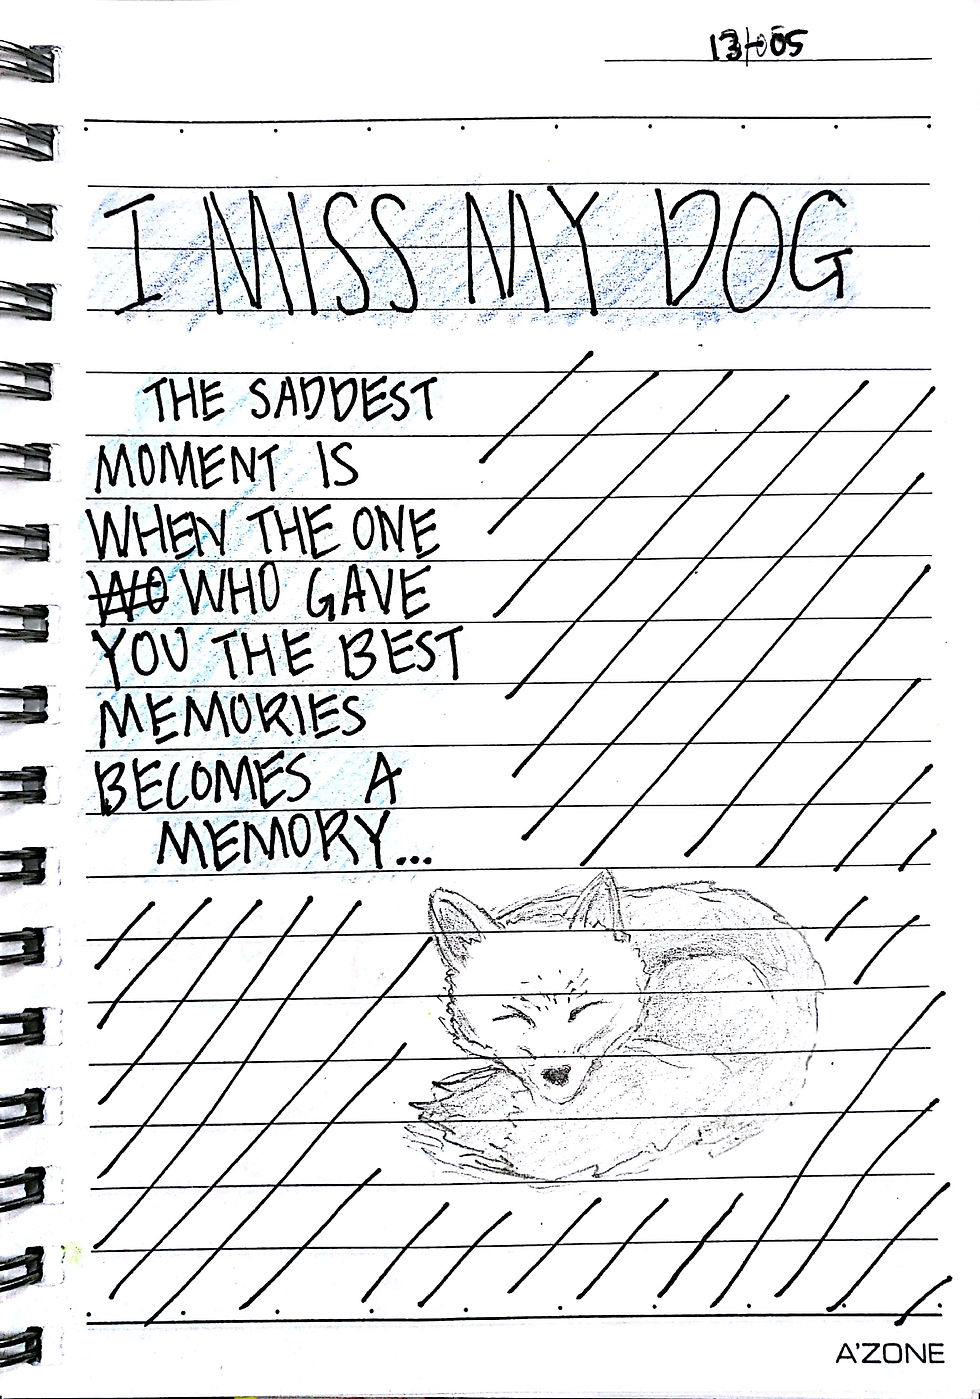 13-05
I MISS MY DOG
THE SADDEST
MOMENT IS
WHEN THE ONE
WHO GAVE
YOU THE BEST
MEMORIES
BECOMES A
MEMORY...
A'ZONE